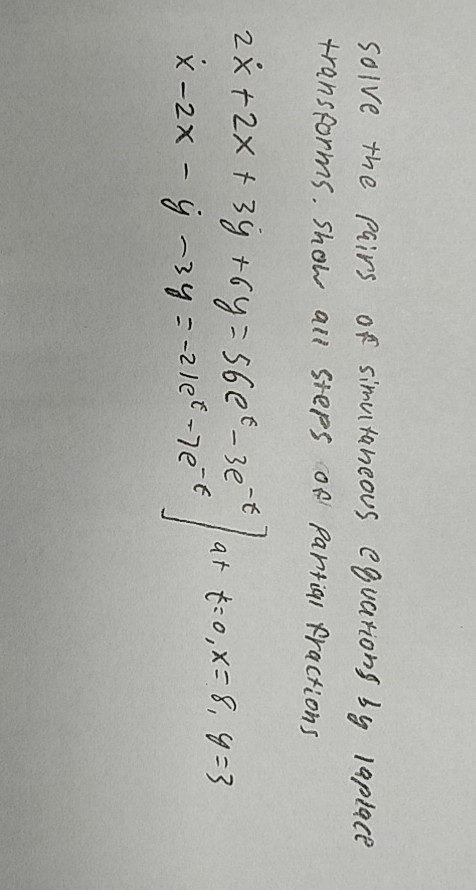 solve the pairs of simultaneous equations by laplace
transforms. show all steps of partial fractions
2ẋ + 2x + 3ẏ + 6y = 56e^t - 3e^-t
ẋ - 2x - ẏ - 3y = -21e^t - 7e^-t ] at t=0, x=8, y=3